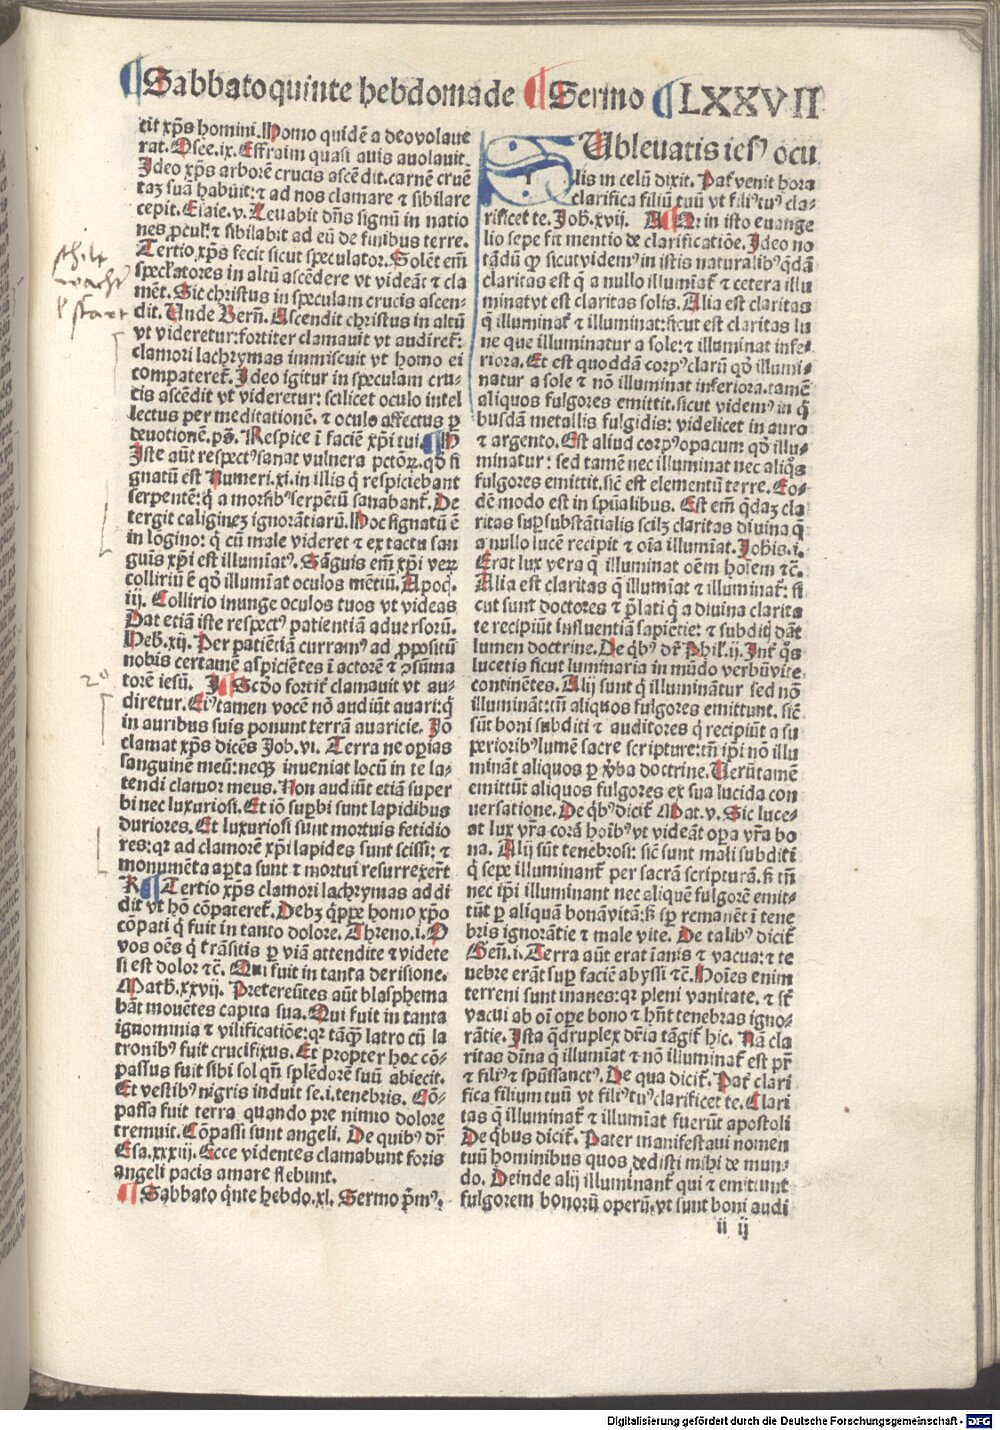 ¶ Sabbato quinte hebdomade ¶ Sermo ¶ LXXVII
cit xp̄s homini. Homo quidē a deo volaue
rat. Osee.ix. Effraim quasi auis auolauit.
Ideo xp̄s arborē crucis ascēdit. carnē cruē
taʒ suā habuit: ⁊ ad nos clamare ⁊ sibilare
cepit. Esaie.v. Leuabit dn̄s signū in natio
nes ꝓcul: ⁊ sibilabit ad eū de finibus terre.
Tertio xp̄s fecit sicut speculator. Solēt em̄
speclatores in altū ascēdere vt videāt ⁊ cla
mēt. Sic christus in speculam crucis ascen-
dit. Unde Bern̄. Ascendit christus in altū
vt videretur: fortiter clamauit vt audiret̄:
clamori lachrymas immiscuit vt homo ei
compateret̄. Ideo igitur in speculam cru-
cis ascēdit vt videretur: scilicet oculo intel
lectus per meditationē. ⁊ oculo affectus ꝑ
deuotionē. pō. Respice ī faciē xp̄i tui. ¶ H
Iste aūt respectꝰ sanat vulnera pctōꝝ. qd̄ si
gnatū est Numeri.xi. in illis q̄ respiciebant
serpentē: q̄ a morsibꝰ serpētū sanabant̄. De
tergit caligineʒ ignorātiarū. Hoc signatū ē
in lōgino: q̄ cū male videret ⁊ ex tactu san
guīs xp̄i est illumīatꝰ. Sāguis em̄ xp̄i veꝝ
colliriū ē qd̄ illumīat oculos mētiū. Apoc.
iij. Collirio inunge oculos tuos vt videas
Dat etiā iste respectꝰ patientiā aduersorū.
Heb.xij. Per patiētiā curramꝰ ad ꝓpositū
nobis certamē aspiciētes ī actorē ⁊ ꝯsūma
torē iesū. I ¶ Scd̄o fortit̄ clamauit vt au-
diretur. Eiꝰ tamen vocē nō audiūt auari: q̄
in auribus suis ponunt terrā auaricie. Iō
clamat xp̄s dicēs Job.vi. Terra ne oꝑias
sanguinē meū: neqꝫ inueniat locū in te la-
tendi clamor meus. Non audiūt etiā super
bi nec luxuriosi. Et iō suꝑbi sunt lapidibus
duriores. Et luxuriosi sunt mortuis fetidio
res: qꝛ ad clamorē xp̄i lapides sunt scissi: ⁊
monumēta aꝑta sunt ⁊ mortui resurrexer̄t
K ¶ Tertio xp̄s clamori lachrymas addi
dit vt hō cōpateret̄. Debʒ q̄ppe homo xp̄o
cōpati q̄ fuit in tanto dolore. Threno.i. O
vos oēs q̄ trāsitis ꝑ viā attendite ⁊ videte
si est dolor ⁊c̄. Qui fuit in tanta derisione.
Math.xxvij. Pretereūtes aūt blasphema
bāt mouētes capita sua. Qui fuit in tanta
ignominia ⁊ vilificatiōe: qꝛ tāqȝ latro cū la
tronibꝰ fuit crucifixus. Et propter hoc cō-
passus fuit sibi sol qn̄ splēdorē suū abiecit.
Et vestibꝰ nigris induit se.i.tenebris. Cō-
passa fuit terra quando pre nimio dolore
tremuit. Cōpassi sunt angeli. De quibꝰ dr̄
Esa.xxxiij. Ecce videntes clamabunt foris
angeli pacis amare flebunt.
¶ Sabbato q̄nte hebdo.xl. Sermo p̄mꝰ.
SUbleuatis iesꝰ ocu
lis in celū dixit. Pat̄ venit hora
clarifica filiū tuū vt filiꝰ tuꝰ cla-
rificet te. Joh.xvij. A ¶ Qr̄ in isto euange
lio sepe fit mentio de clarificatiōe. Ideo no
tādū ꝙ sicut videmꝰ in istis naturalibꝰ q̄dā
claritas est q̄ a nullo illumīat̄ ⁊ cetera illu
minat vt est claritas solis. Alia est claritas
q̄ illuminat̄ ⁊ illuminat: sicut est claritas lu
ne que illuminatur a sole: ⁊ illuminat infe-
riora. Et est quoddā corpꝰ clarū qd̄ illumi-
natur a sole ⁊ nō illuminat inferiora. tamē
aliquos fulgores emittit. sicut videmꝰ in q̄
busdā metallis fulgidis: videlicet in auro
⁊ argento. Est aliud corpꝰ opacum: qd̄ illu-
minatur: sed tamē nec illuminat nec aliq̄s
fulgores emittit. sic̄ est elementū terre. Eo-
dē modo est in spūalibus. Est em̄ q̄daʒ cla
ritas suꝑsubstātialis scilʒ claritas diuina q̄
a nullo lucē recipit ⁊ oīa illumīat. Johis.i.
Erat lux vera q̄ illuminat oēm hoīem ⁊c̄.
Alia est claritas q̄ illumīat ⁊ illuminat̄: si
cut sunt doctores ⁊ p̄lati q̄ a diuina clarita
te recipiūt influentiā sapiētie: ⁊ subditis dāt
lumen doctrine. De qͥbꝰ dr̄ Phil.ij. Int̄ q̄s
lucetis sicut luminaria in mūdo verbū vite
continētes. Alij sunt q̄ illuminātur sed nō
illumināt: tn̄ aliquos fulgores emittunt. sic̄
sūt boni subditi ⁊ auditores q̄ recipiūt a su
perioribꝰ lumē sacre scripture: tn̄ ip̄i nō illu
mināt aliquos ꝑ v̄ba doctrine. Uerūtamē
emittūt aliquos fulgores ex sua lucida con
uersatione. De qͥbꝰ dicit̄ Mat.v. Sic luce-
at lux vr̄a corā hoībꝰ vt videāt oꝑa vr̄a bo
na. Alij sūt tenebrosi: sic̄ sunt mali subditi
q̄ sepe illuminant̄ per sacrā scripturā. sꝫ tn̄
nec ip̄i illuminant nec aliquē fulgorē emit-
tūt ꝑ aliquā bonā vitā: sꝫ sp̄ remanēt ī tene
bris ignorātie ⁊ male vite. De talibꝰ dicit̄
Gen̄.i. Terra aūt erat īanis ⁊ vacua: ⁊ te
nebre erāt suꝑ faciē abyssi ⁊c̄. Hoīes enim
terreni sunt inanes: qꝛ pleni vanitate. ⁊ st̄
vacui ab oī oꝑe bono ⁊ hn̄t tenebras igno-
rātie. Ista q̄druplex dr̄ia tāgit̄ hic. Nā cla
ritas dīna q̄ illumīat ⁊ nō illuminat̄ est pr̄
⁊ filiꝰ ⁊ spūssanctꝰ. De qua dicit̄. Pat̄ clari
fica filium tuū vt filiꝰ tuꝰ clarificet te. Clari
tas q̄ illuminat̄ ⁊ illumīat fuerūt apostoli
De qͥbus dicit̄. Pater manifestaui nomen
tuū hominibus quos dedisti mihi de mun-
do. Deinde alij illuminant̄ qui ⁊ emittunt
fulgorem bonorū operū. vt sunt boni audi
ii ij
Digitalisierung gefördert durch die Deutsche Forschungsgemeinschaft - DFG